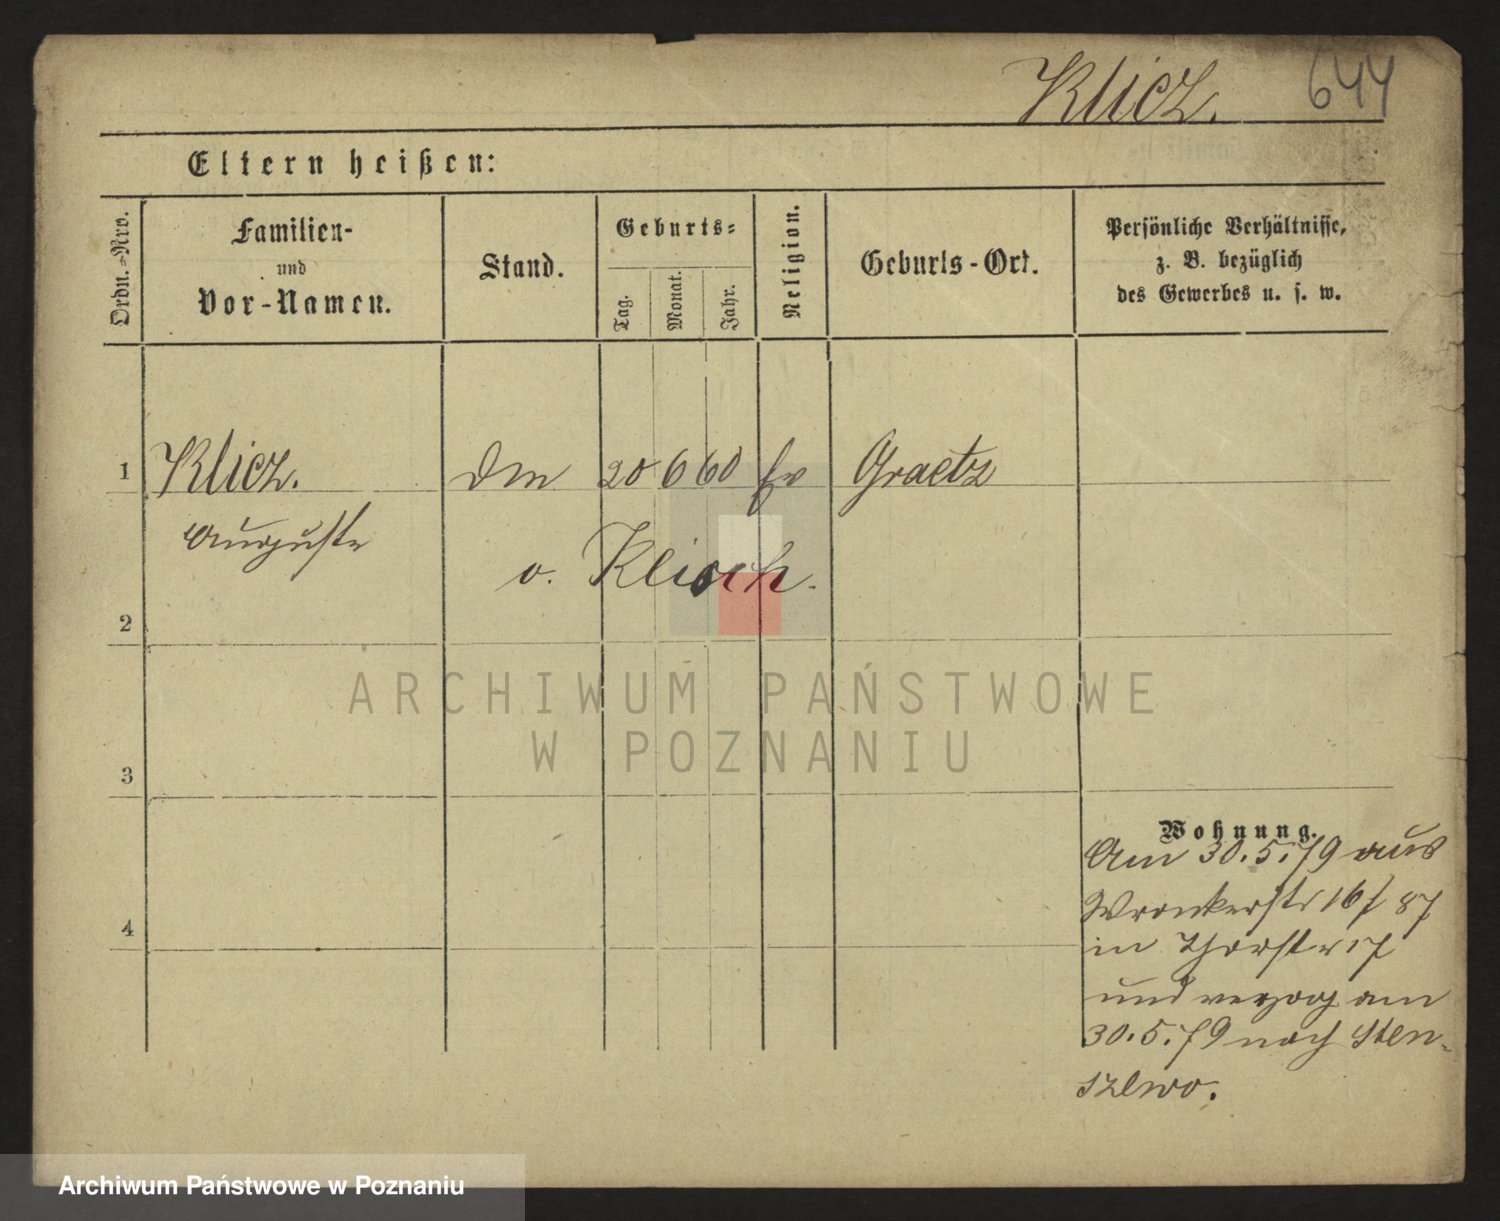 Klicz. 644
Eltern heißen:
Ordn.-Nro.
Familien-
und
Vor-Namen.
Stand.
Geburts-
Tag.
Monat.
Jahr.
Religion.
Geburts-Ort.
Persönliche Verhältnisse,
z. B. bezüglich
des Gewerbes u. s. w.
1 Klicz. 20 6 60 ev Graetz
Auguste
o. Klisch.
2
ARCHIWUM PAŃSTWOWE
W POZNANIU
3
Wohnung.
Am 30.5.79 aus
Wronkerstr 16/87
in 17
und verzog am
30.5.79 nach Sten-
szewo.
4
Archiwum Państwowe w Poznaniu